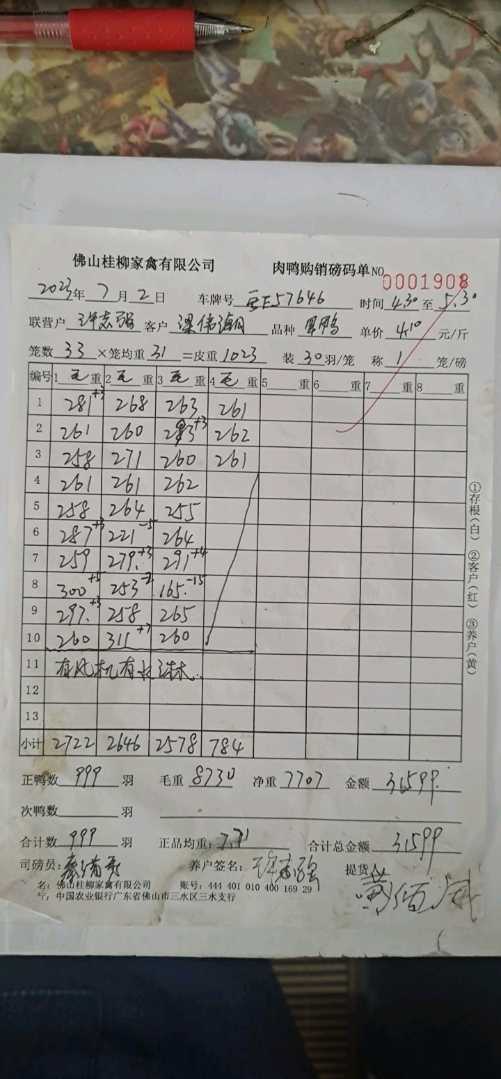 佛山桂柳家禽有限公司 肉鸭购销磅码单 NO 0001908
2023年 7 月 2 日 车牌号 E57646 时间 4.30 至 5.30
联营户 许志强 客户 梁伟 品种 鸭 单价 4.10 元/斤
笼数 33 ×笼均重 31 =皮重 1023 装 30 羽/笼 称 1 笼/磅
编号 1 毛 重 2 毛 重 3 毛 重 4 毛 重 5 重 6 重 7 重 8 重
1 281+3 268 263 261
2 261 260 293+3 262
3 258 271 260 261
4 261 261 262
5 258 264 255
6 287+3 221-5 264
7 259 279.+3 291+4
8 300+5 253 165.-15
9 297.+3 258 265
10 260 311+7 260
11 有风机有水
12
13
小计 2722 2646 2578 784
正鸭数 999 羽 毛重 8730 净重 7707 金额 31599.
次鸭数 羽
合计数 999 羽 正品均重: 7.71 合计总金额 31599
司磅员: 养户签名: 许志强 提货
名: 佛山桂柳家禽有限公司 账号: 444 401 010 400 169 29
中国农业银行广东省佛山市三水区三水支行
①存根(白) ②客户(红) ③养户(黄)